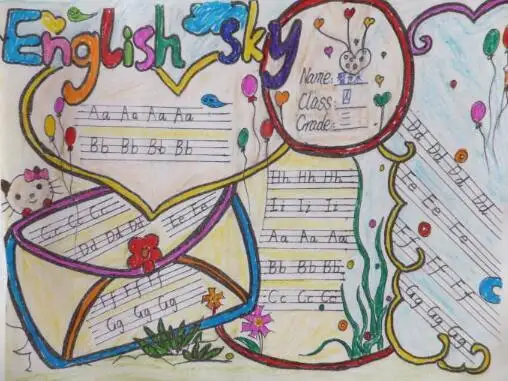 English sky
Name:
Class: 四
Grade: 三
Aa Aa Aa Aa
Bb Bb Bb Bb
Cc Cc Cc
Dd Dd Dd
Ee Ee Ee
Ff Ff Ff
Gg Gg Gg
Hh Hh Hh
Ii Ii Ii
Aa Aa Aa
Bb Bb Bb
Cc Cc Cc
Dd Dd Dd Dd
Ee Ee Ee
Ff Ff Ff
Gg Gg Gg